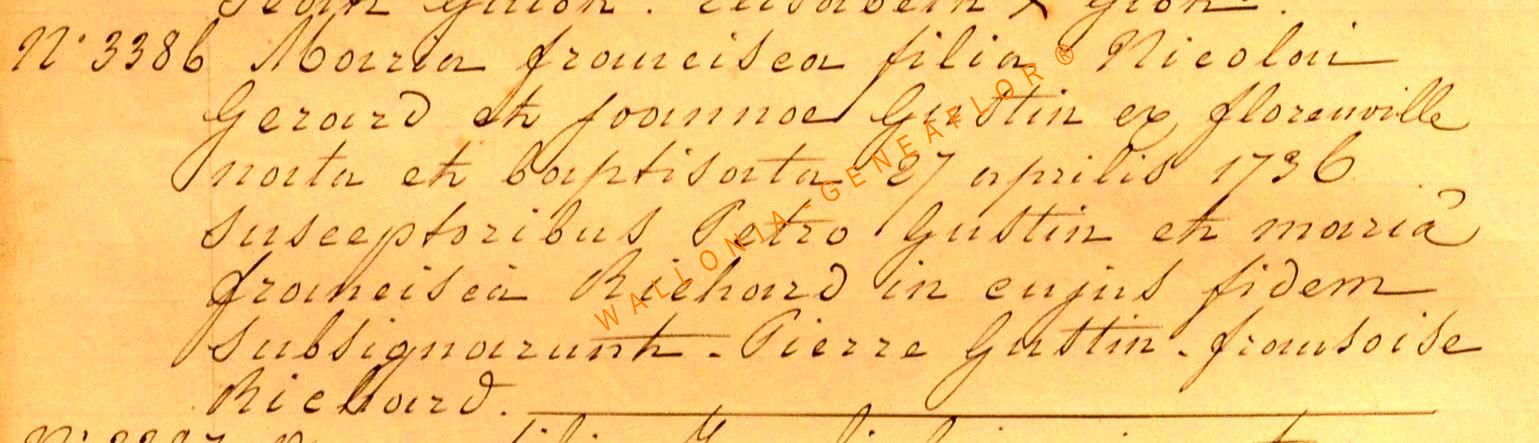 Jean Guiot. Elisabeth X Giot.
N° 3386 Maria francisca filia Nicolai
Gerard et joannae Gustin ex florenville
nata et baptisata 27 aprilis 1736
susceptoribus Petro Gustin et mariâ
franciscâ Richard in cujus fidem
subsignarunt - Pierre Gustin - fransoise
Richard.
WALLONIA-GENEAFLOR ®